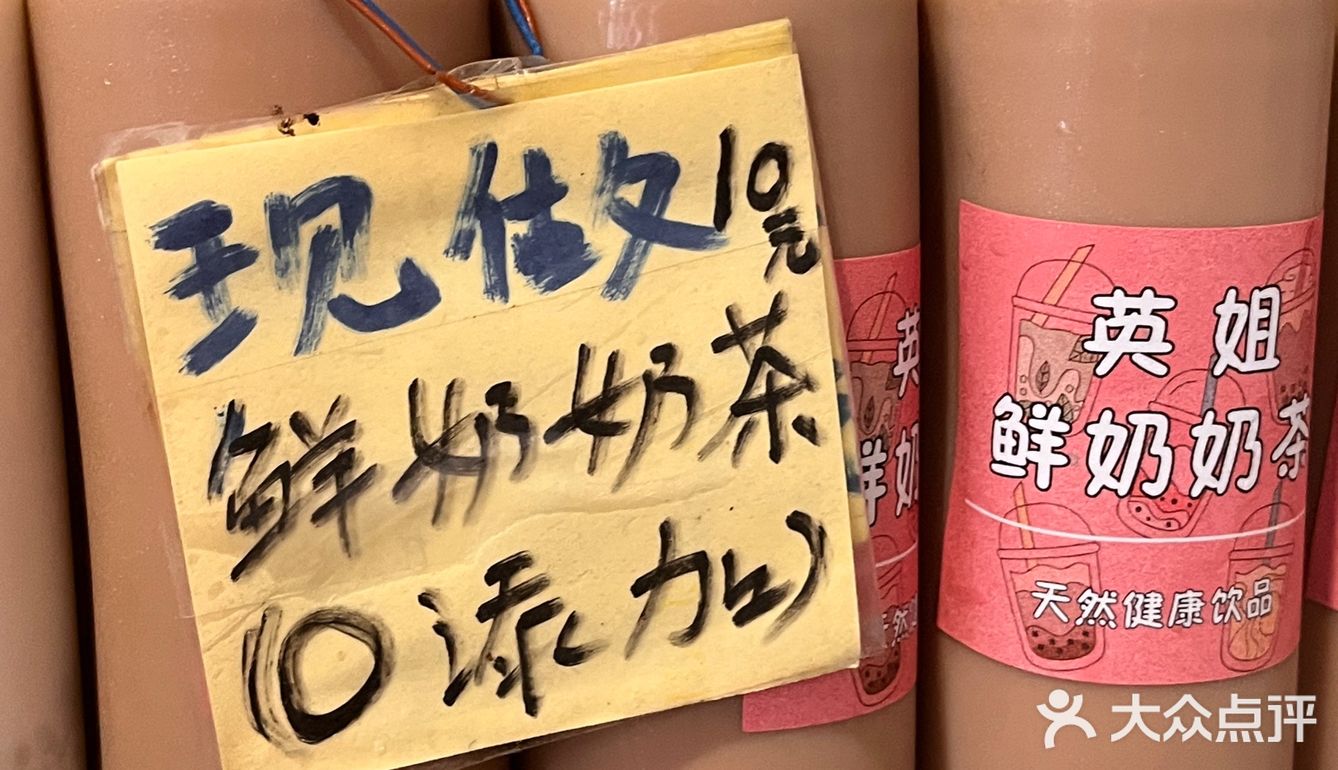 现做10元
鲜奶奶茶
(0添加)
英姐
鲜奶奶茶
天然健康饮品
英
鲜奶
天然
大众点评